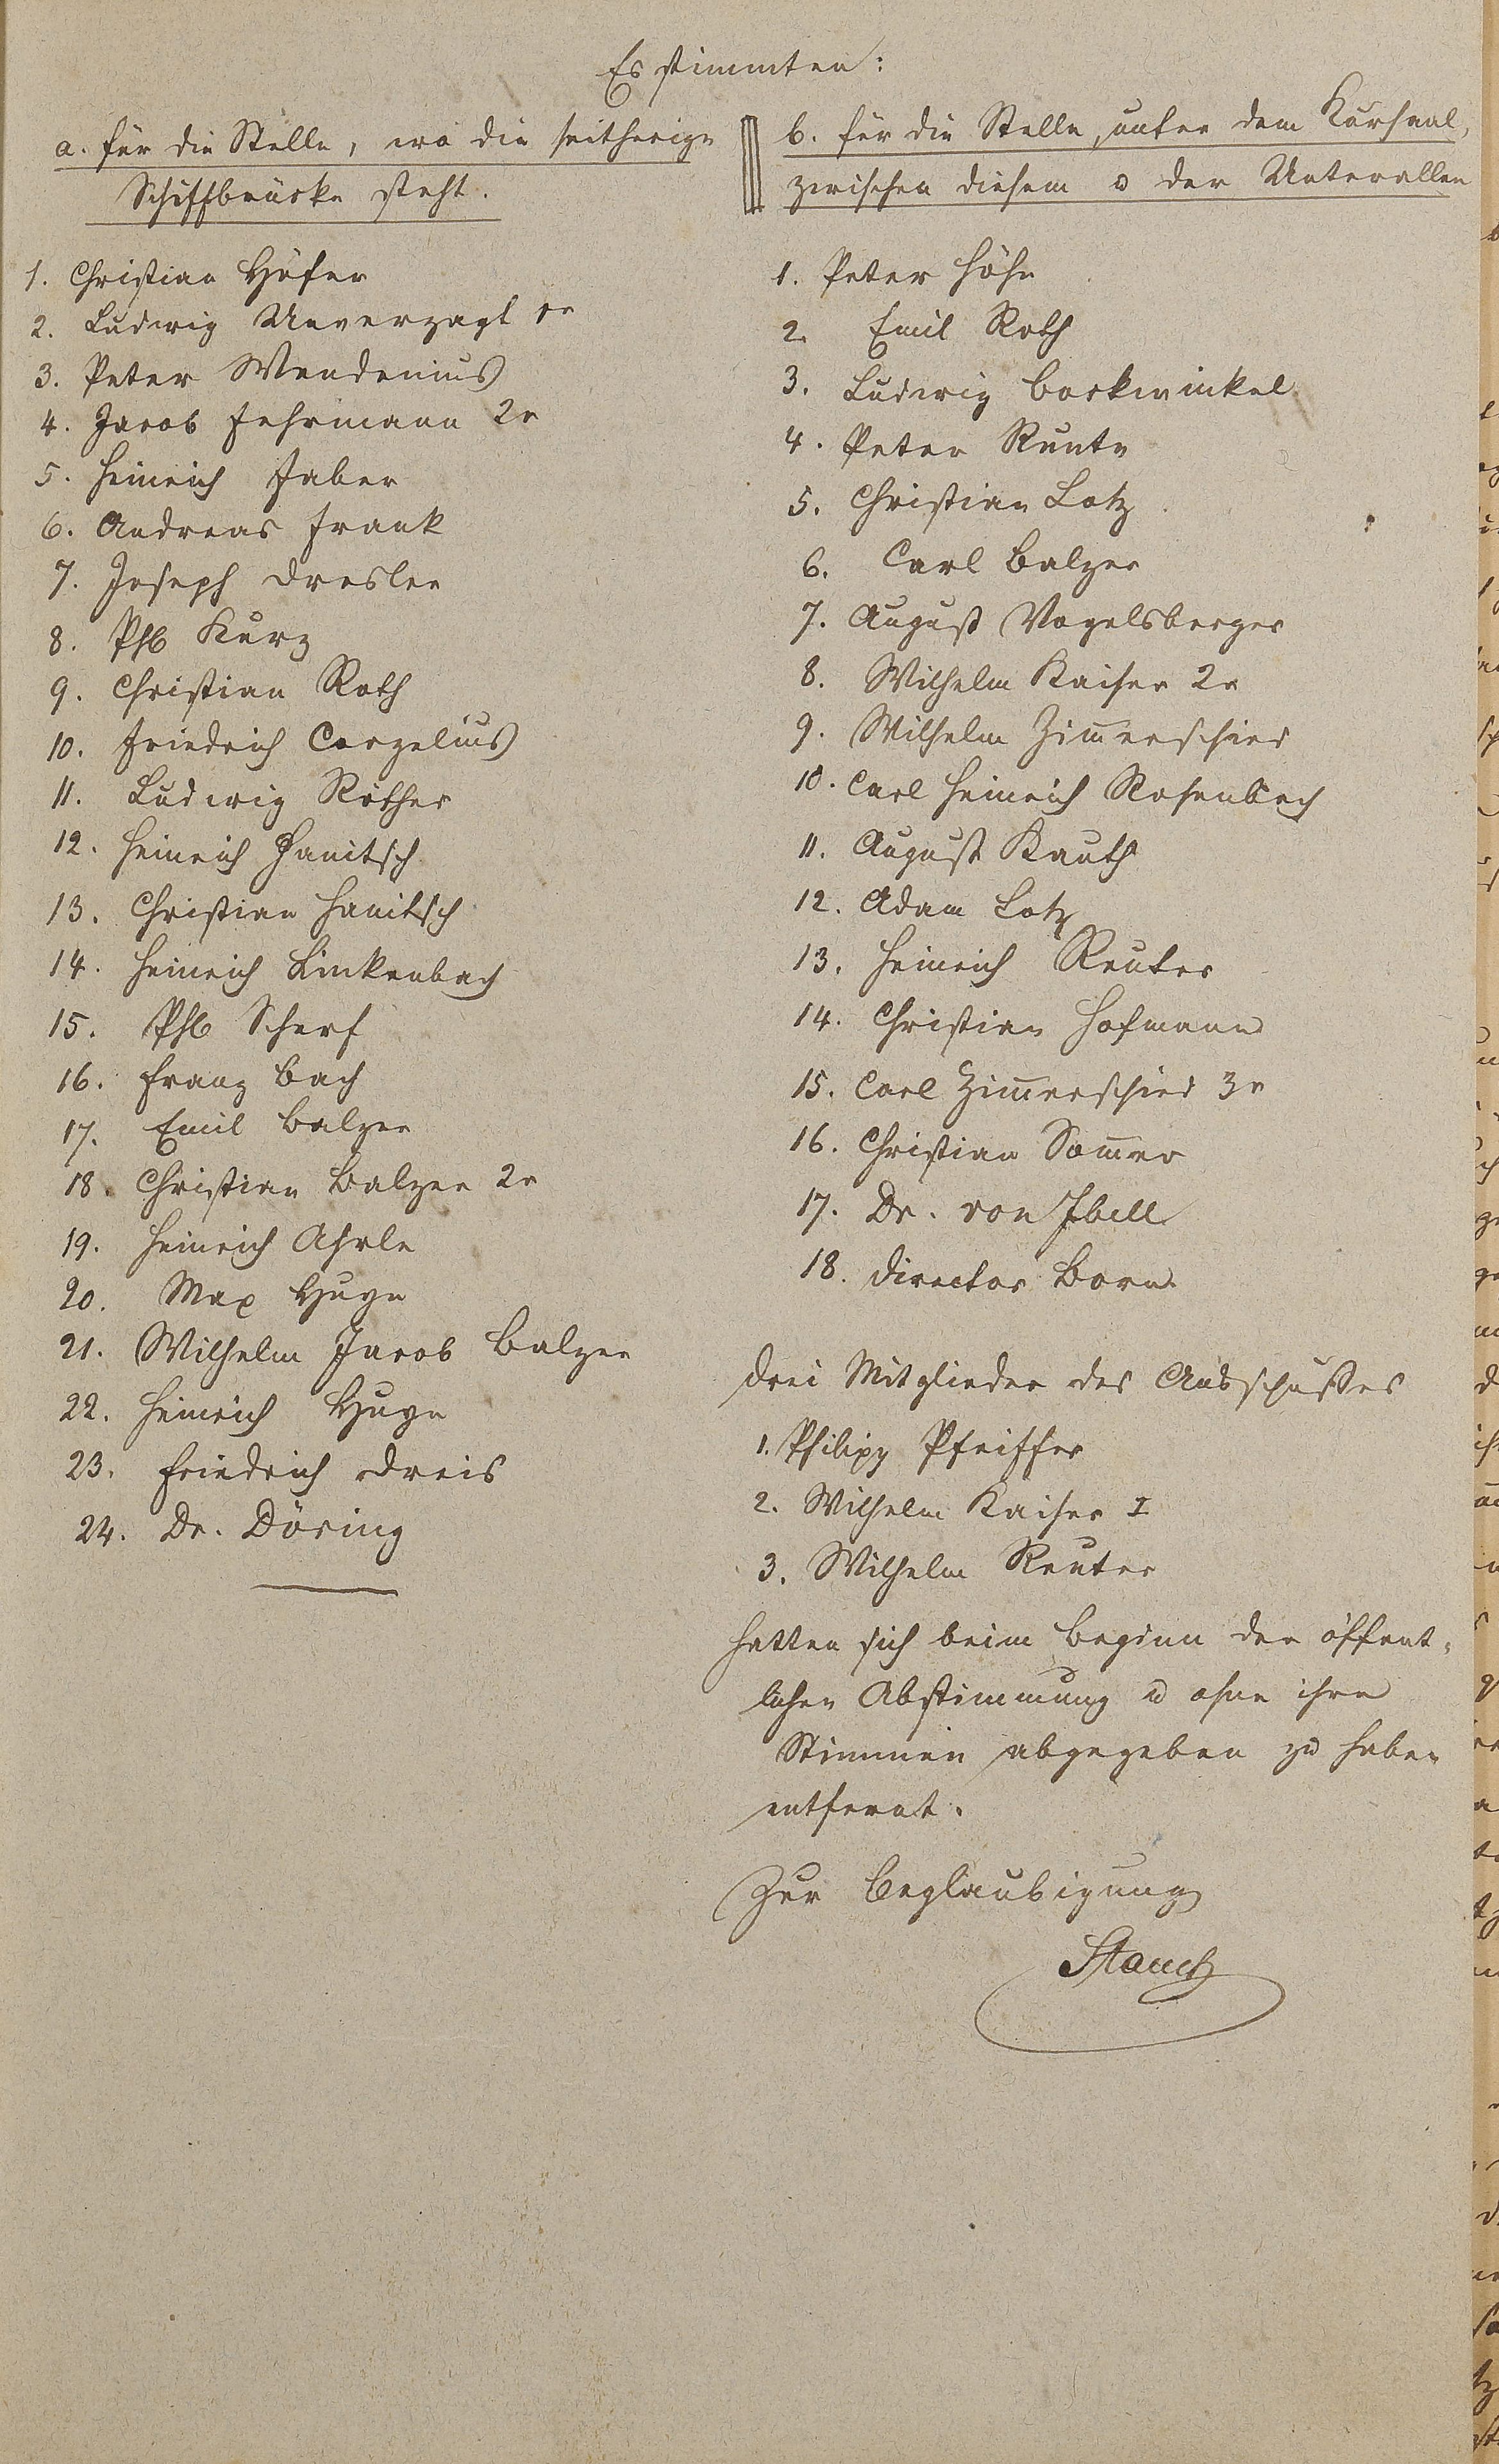 Es stimmten:
a. für die Stelle, wo die seitherige
Schiffbrücke steht.
1. Christian Höfer
2. Ludwig Unverzagt 1r
3. Peter Wendenius
4. Jacob Fehrmann 2r
5. Heinrich Faber
6. Andreas Frank
7. Joseph Dresler
8. Phl Kurz
9. Christian Roth
10. Friedrich Corzelius
11. Ludwig Röther
12. Heinrich Hanitsch
13. Christian Hanitsch
14. Heinrich Linkenbach
15. Phl Scherf
16. Franz Bach
17. Emil Balzer
18. Christian Balzer 2r
19. Heinrich Ahrle
20. Max Huyn
21. Wilhelm Jacob Balzer
22. Heinrich Huyn
23. Friedrich Dreis
24. Dr. Döring
b. für die Stelle, unter dem Kursaal,
zwischen diesem u der Unterallee
1. Peter Höhn
2. Emil Roth
3. Ludwig Borkwinkel
4. Peter Runte
5. Christian Lotz
6. Carl Balzer
7. August Vogelsberger
8. Wilhelm Kaiser 2r
9. Wilhelm Zim̄erschied
10. Carl Heinrich Rosenbach
11. August Kauth
12. Adam Lotz
13. Heinrich Reuter
14. Christian Hofmann
15. Carl Zim̄erschied 3r
16. Christian Som̄er
17. Dr. von Ibell
18. Director Born
Drei Mitglieder des Ausschußes
1. Philipp Pfeiffer
2. Wilhelm Kaiser I
3. Wilhelm Reuter
hatten sich beim Beginn der öffent-
lichen Abstimmung u ohne ihre
Stimmen abgegeben zu haben
entfernt.
Zur Beglaubigung
Stauch